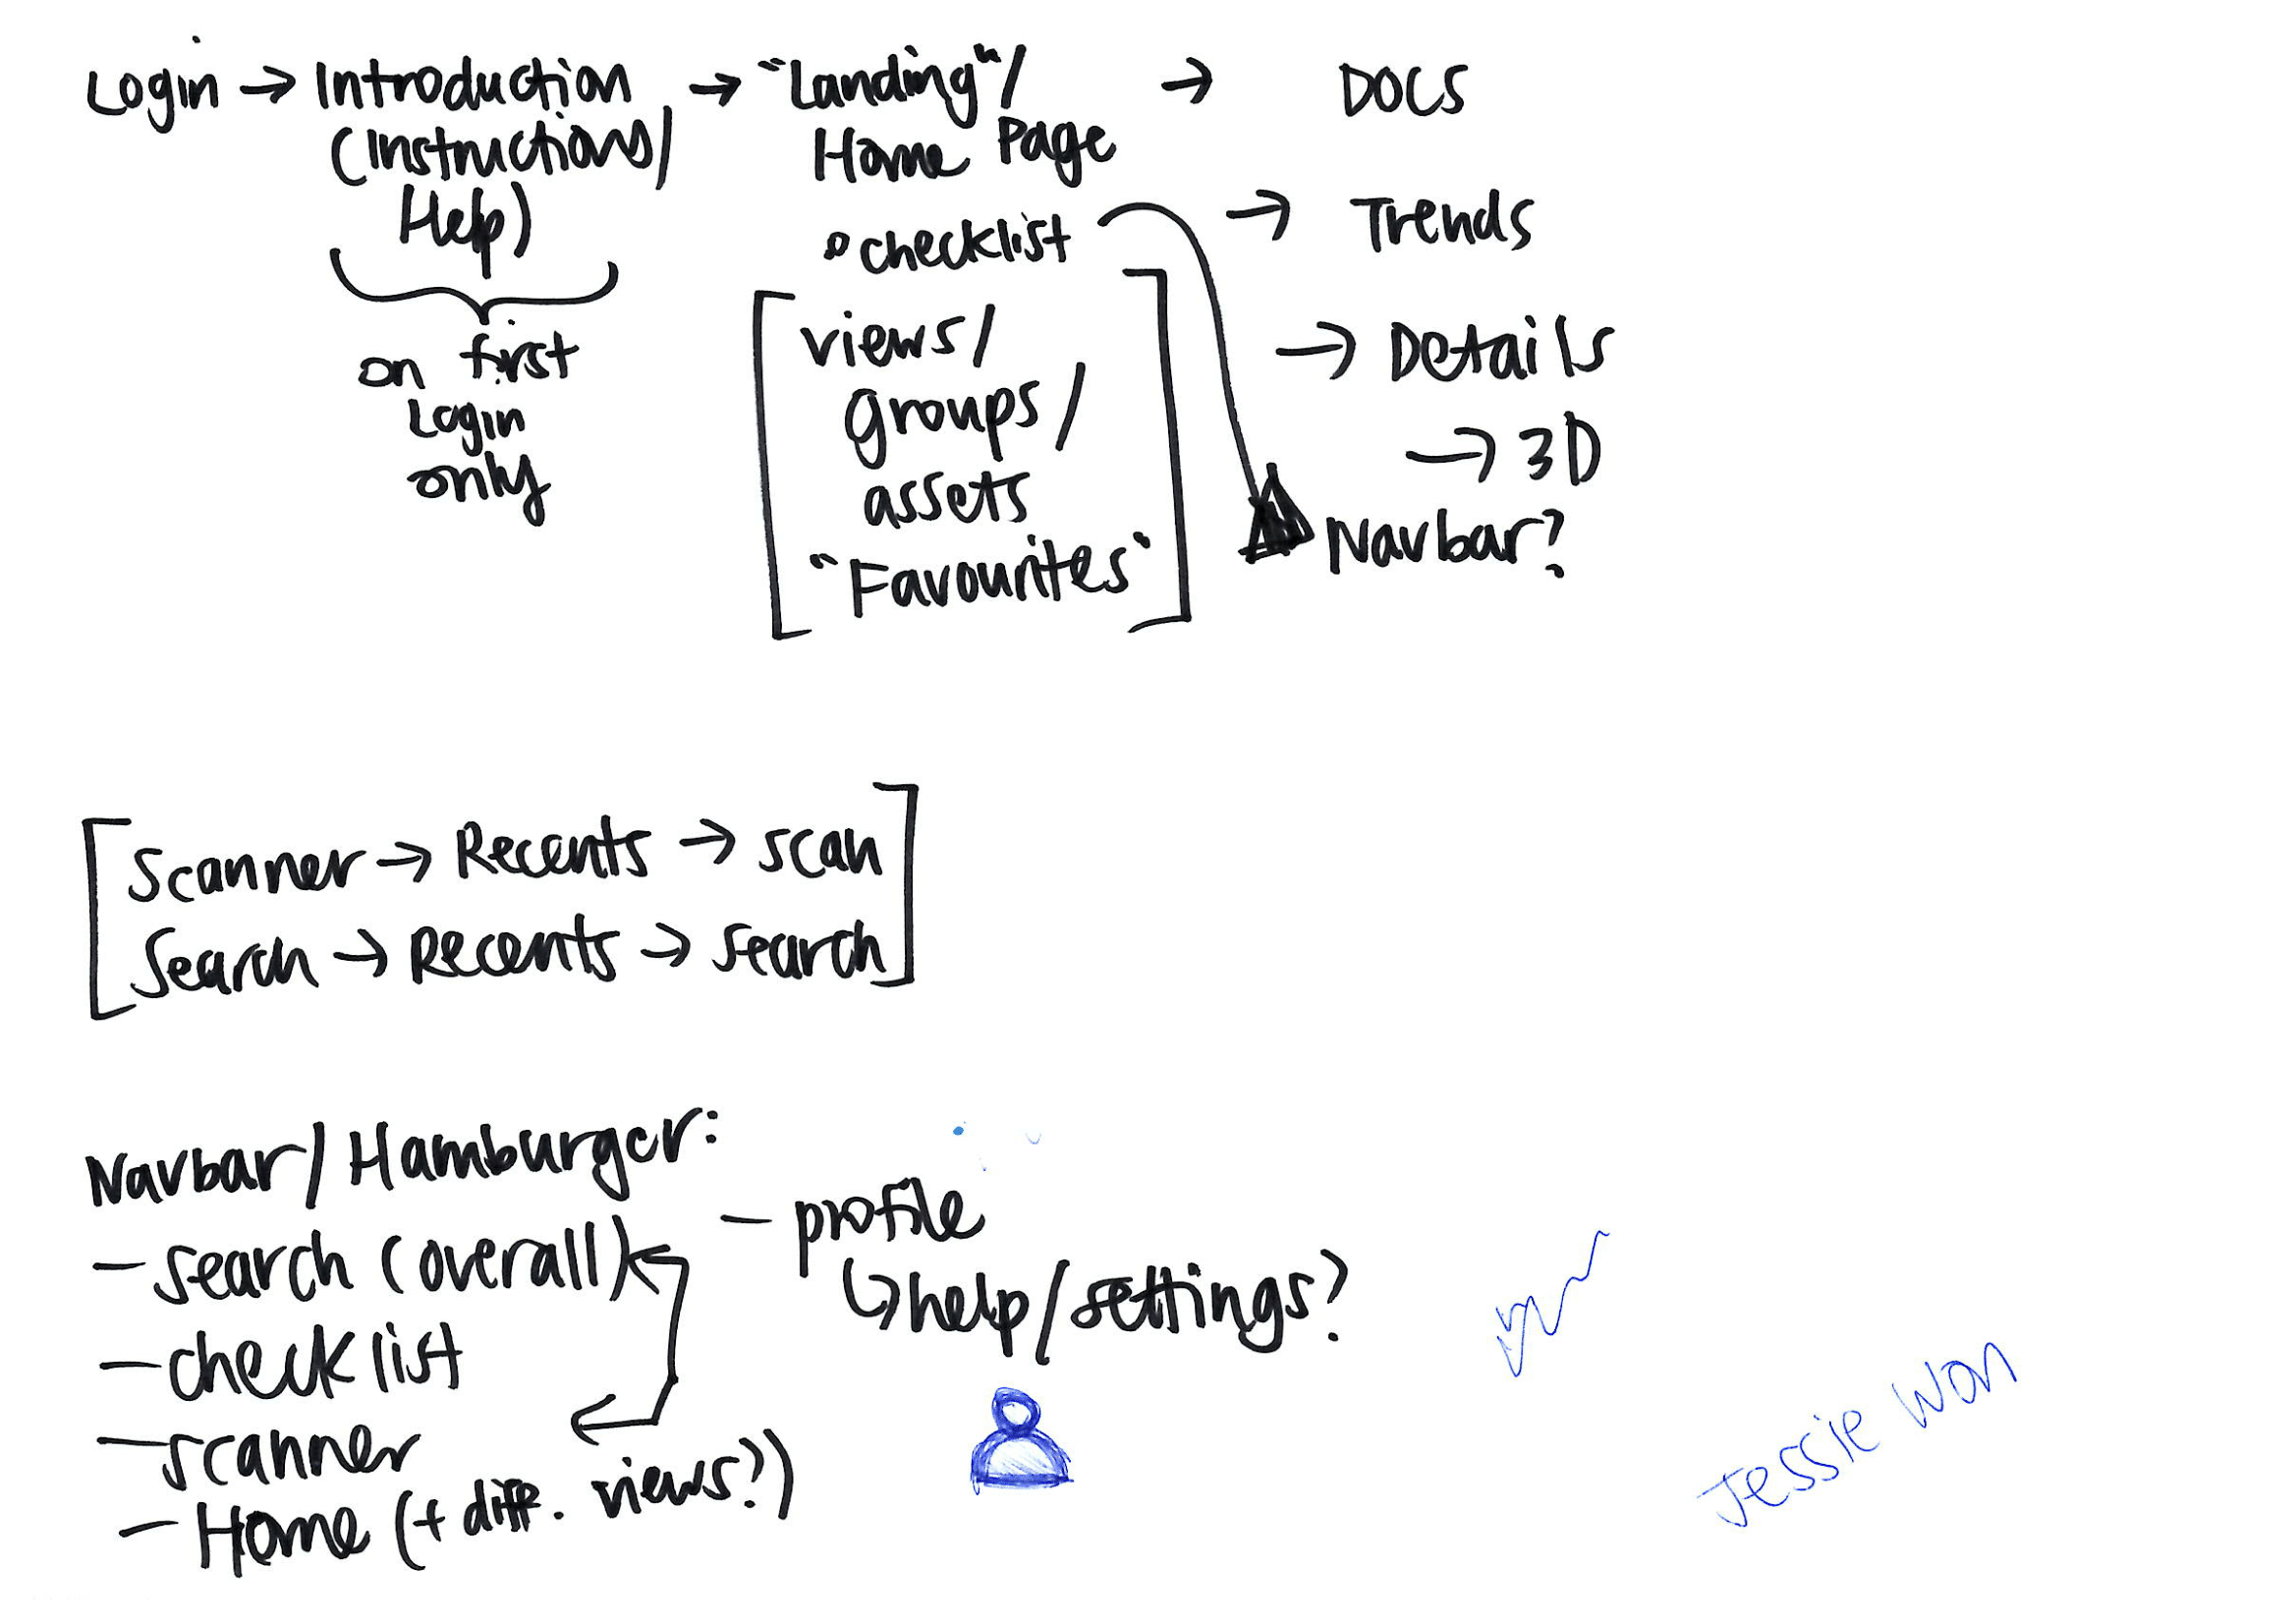 Login → Introduction → "Landing"/ → DOCS
(Instructions/ Home Page
Help) → Trends
• checklist
on first
Login
only
[views/
groups/
assets
"Favourites"]
→ Details
→ 3D
Navbar?
[Scanner → Recents → scan
Search → Recents → search]
Navbar/Hamburger:
- search (overall)
- checklist
- scanner
- Home (+ diff. views?)
- profile
↳ help/settings?
Jessie Won